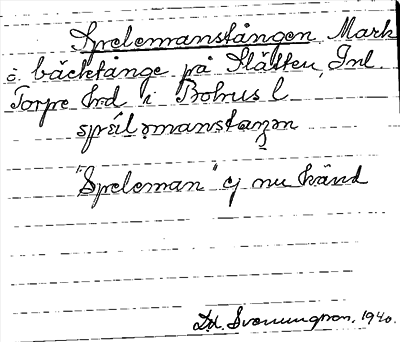 Spelemanstången Mark
o. bäcktånge på Slätten, Inl.
Torpe hrd i Bohus l
spélomanstaŋən
"Speleman" ej nu känd
Dd. Svenungsson. 1940.